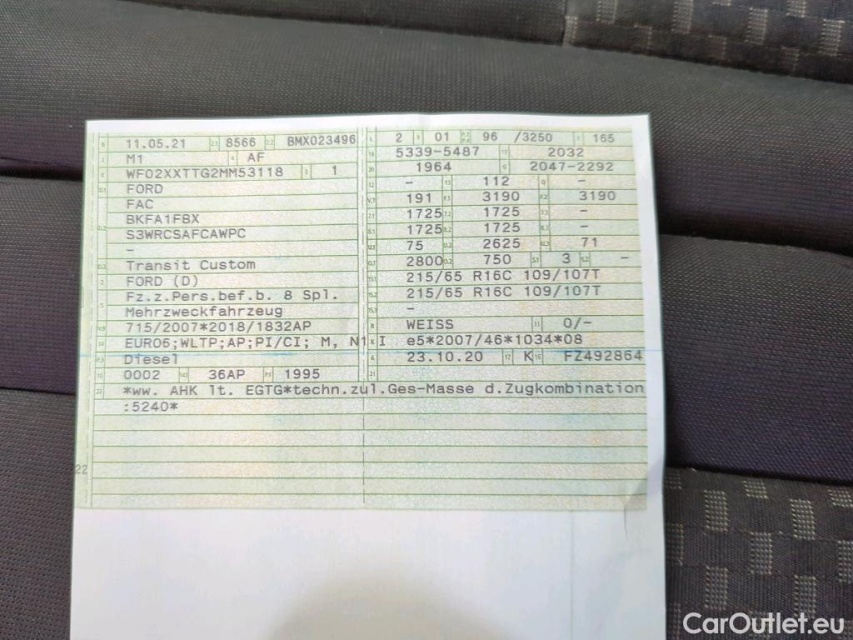 11.05.21 8566 BMX023496 2 01 96 /3250 165
M1 AF 5339-5487 2032
WF02XXTTG2MM53118 1 1964 2047-2292
FORD - 112 -
FAC 191 3190 3190
BKFA1FBX 1725 1725 -
S3WRCSAFCAWPC 1725 1725 -
- 75 2625 71
Transit Custom 2800 750 3 -
FORD (D) 215/65 R16C 109/107T
Fz.z.Pers.bef.b. 8 Spl. 215/65 R16C 109/107T
Mehrzweckfahrzeug -
715/2007*2018/1832AP WEISS 0/-
EURO6;WLTP;AP;PI/CI; M, N1 I e5*2007/46*1034*08
Diesel 23.10.20 K FZ492864
0002 36AP 1995
*ww. AHK lt. EGTG*techn.zul.Ges-Masse d.Zugkombination
:5240*
22
CarOutlet.eu